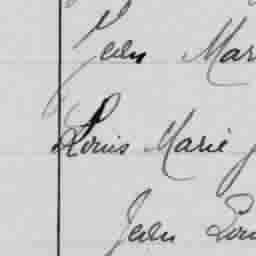 Jean Mar
Louis Marie J
Jean Lou